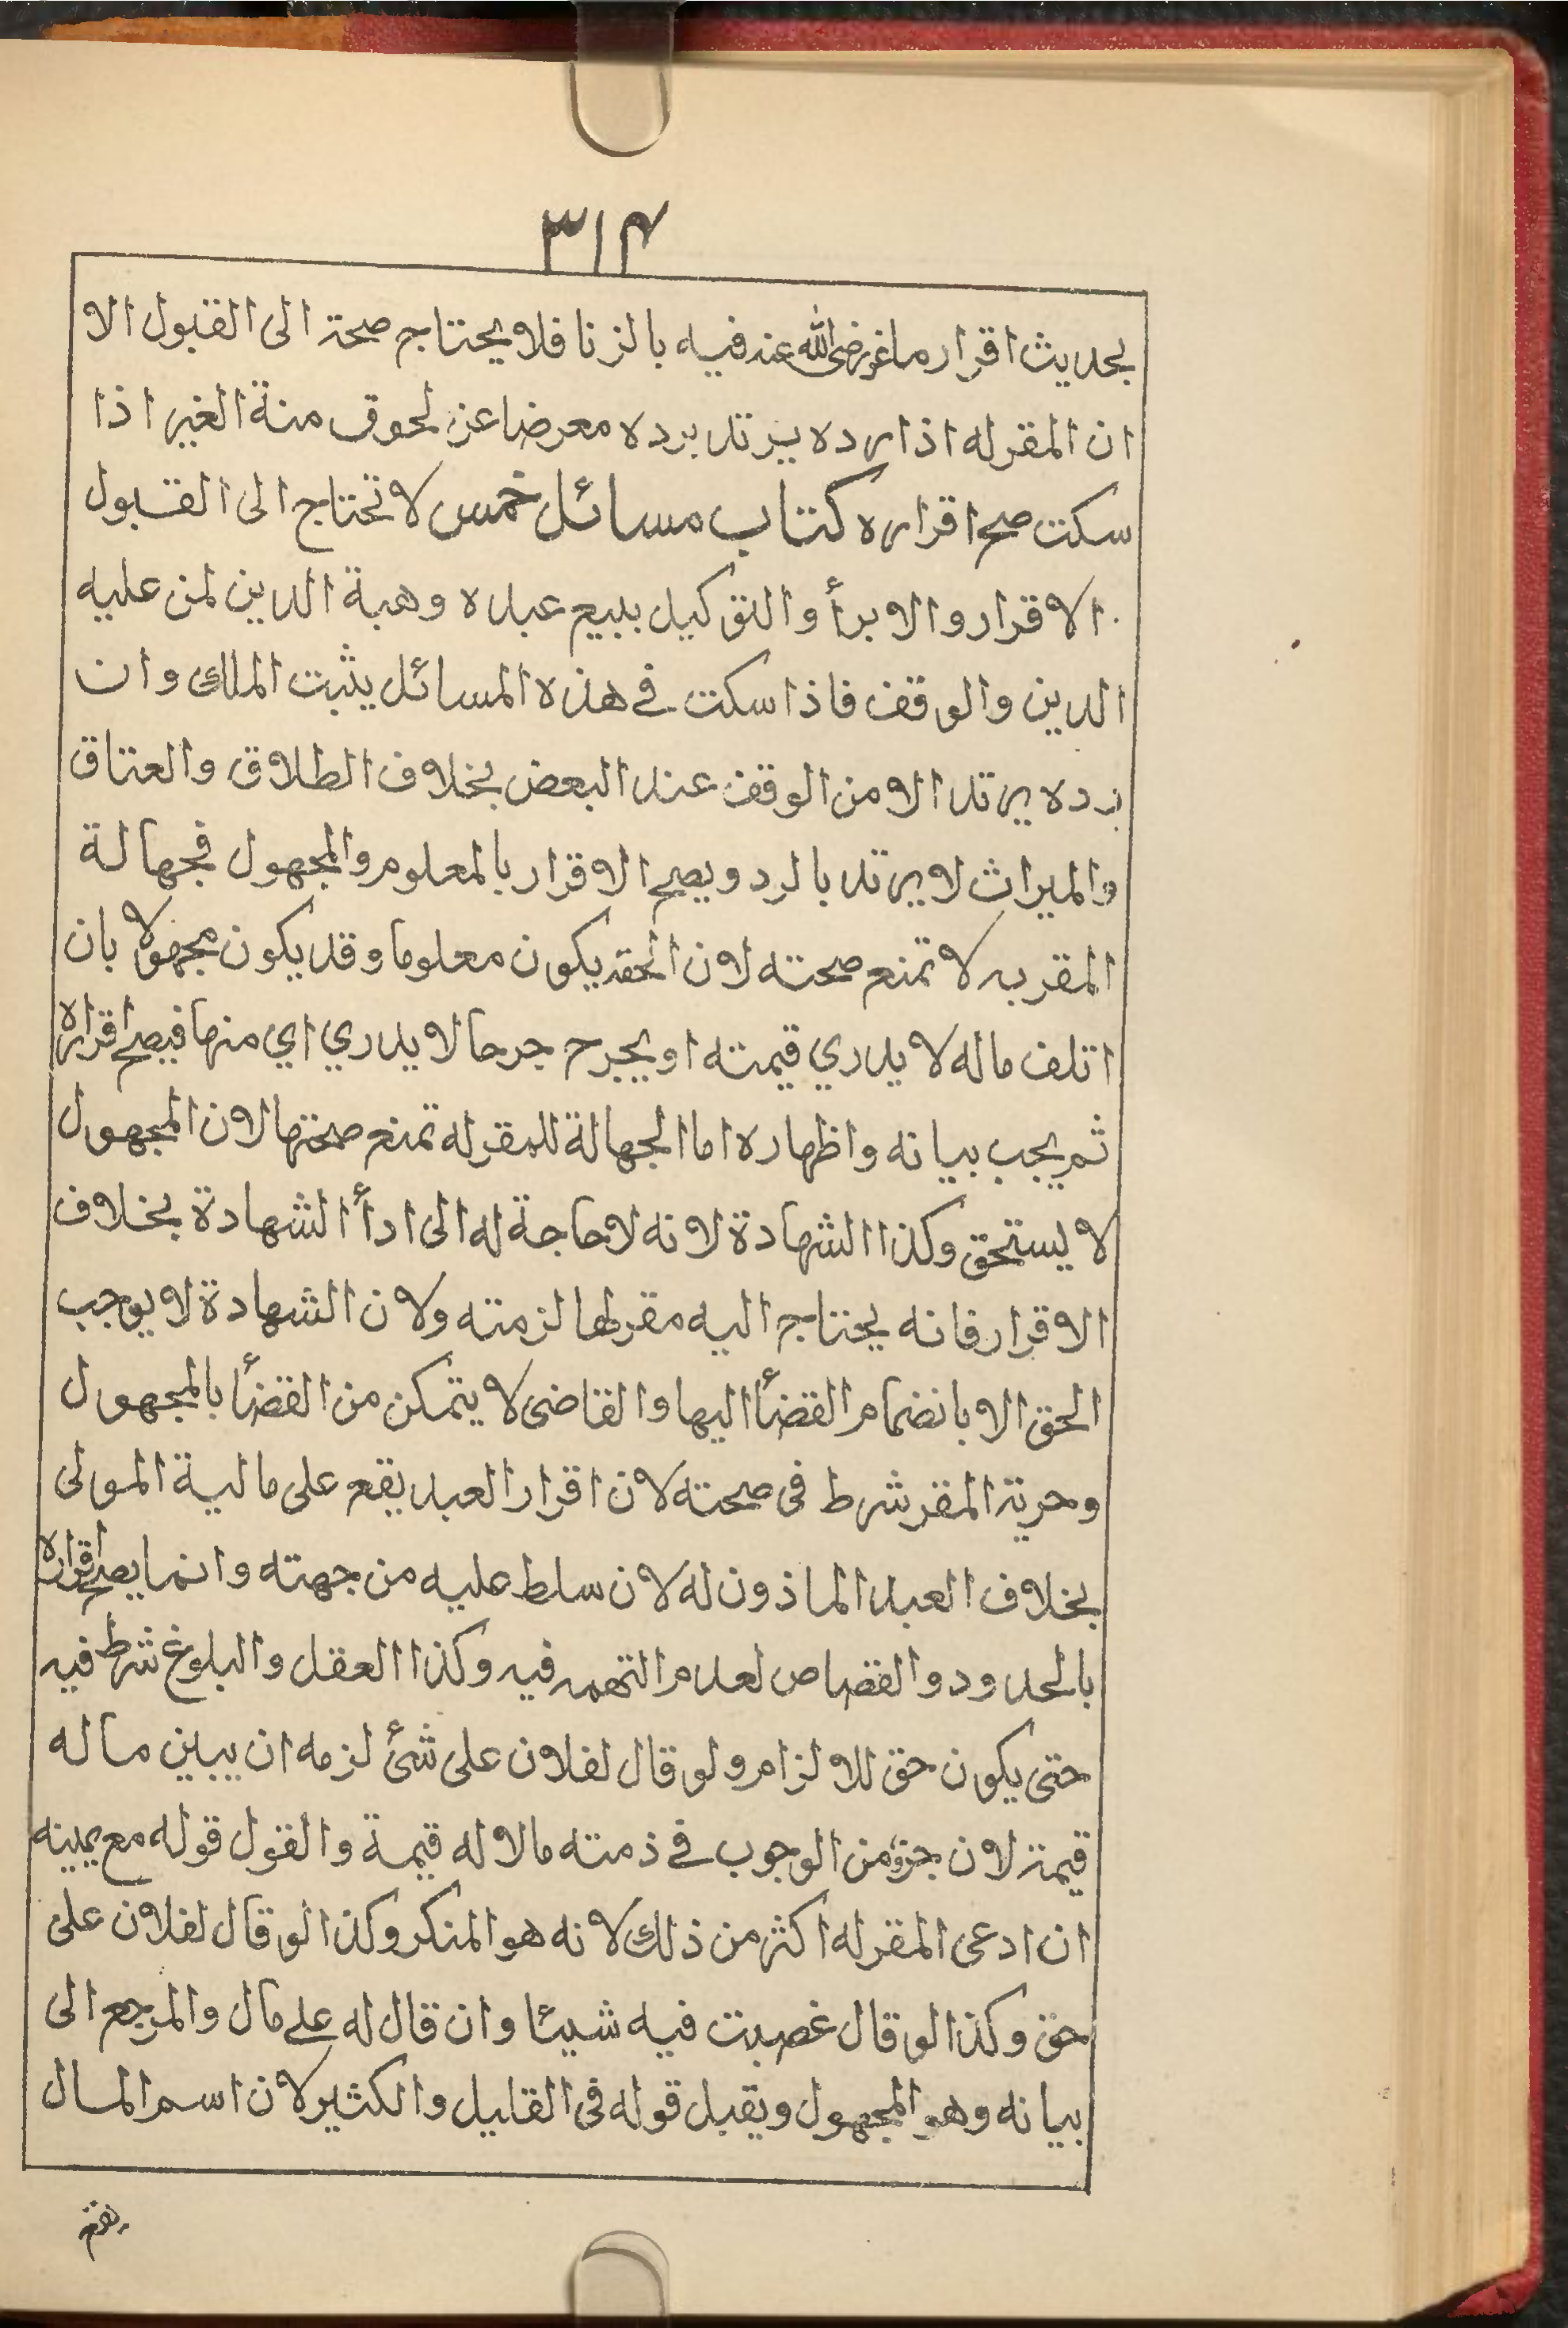 ٣١٤
بحديث اقرار ماغر رضى الله عنه فيه بالزنا فلا يحتاج صحته الى القبول الا
ان المقر له اذا رده يرتد برده معرضا عن لحوق منة الغير اذا
سكت صح اقراره كتاب مسائل خمس لا تحتاج الى القبول
الاقرار والابرأ والتوكيل ببيع عبده وهبة الدين لمن عليه
الدين والوقف فاذا سكت فى هذه المسائل يثبت الملك وان
رده يرتد الا من الوقف عند البعض بخلاف الطلاق والعتاق
والميراث لا يرتد بالرد ويصح الاقرار بالمعلوم والمجهول فجهالة
المقر به لا تمنع صحته لان الحق يكون معلوما وقد يكون مجهولا بان
اتلف ماله لا يدري قيمته او يجرح جرحا لا يدري اي منها فيصح اقراره
ثم يجب بيانه واظهاره اما الجهالة للمقر له تمنع صحتها لان المجهول
لا يستحق وكذا الشهادة لانه لا حاجة له الى ادأ الشهادة بخلاف
الاقرار فانه يحتاج اليه مقر لها لزمته ولان الشهادة لا يوجب
الحق الا بانضمام القضأ اليها والقاضى لا يتمكن من القضأ بالمجهول
وحرية المقر شرط فى صحته لان اقرار العبد يقع على مالية المولى
بخلاف العبد الماذون له لان سلط عليه من جهته وانما يصح اقراره
بالحدود والقصاص لعدم التهمه فيه وكذا العقل والبلوغ شرط فيه
حتى يكون حق للالزام ولو قال لفلان على شئ لزمه ان يبين ما له
قيمة لان جزء من الوجوب فى ذمته مالا له قيمة والقول قوله مع يمينه
ان ادعى المقر له اكثر من ذلك لانه هو المنكر وكذا لو قال لفلان على
حق وكذا لو قال غصبت فيه شيئا وان قال له على مال والمرجع الى
بيانه وهو المجهول ويقبل قوله فى القليل والكثير لان اسم المال